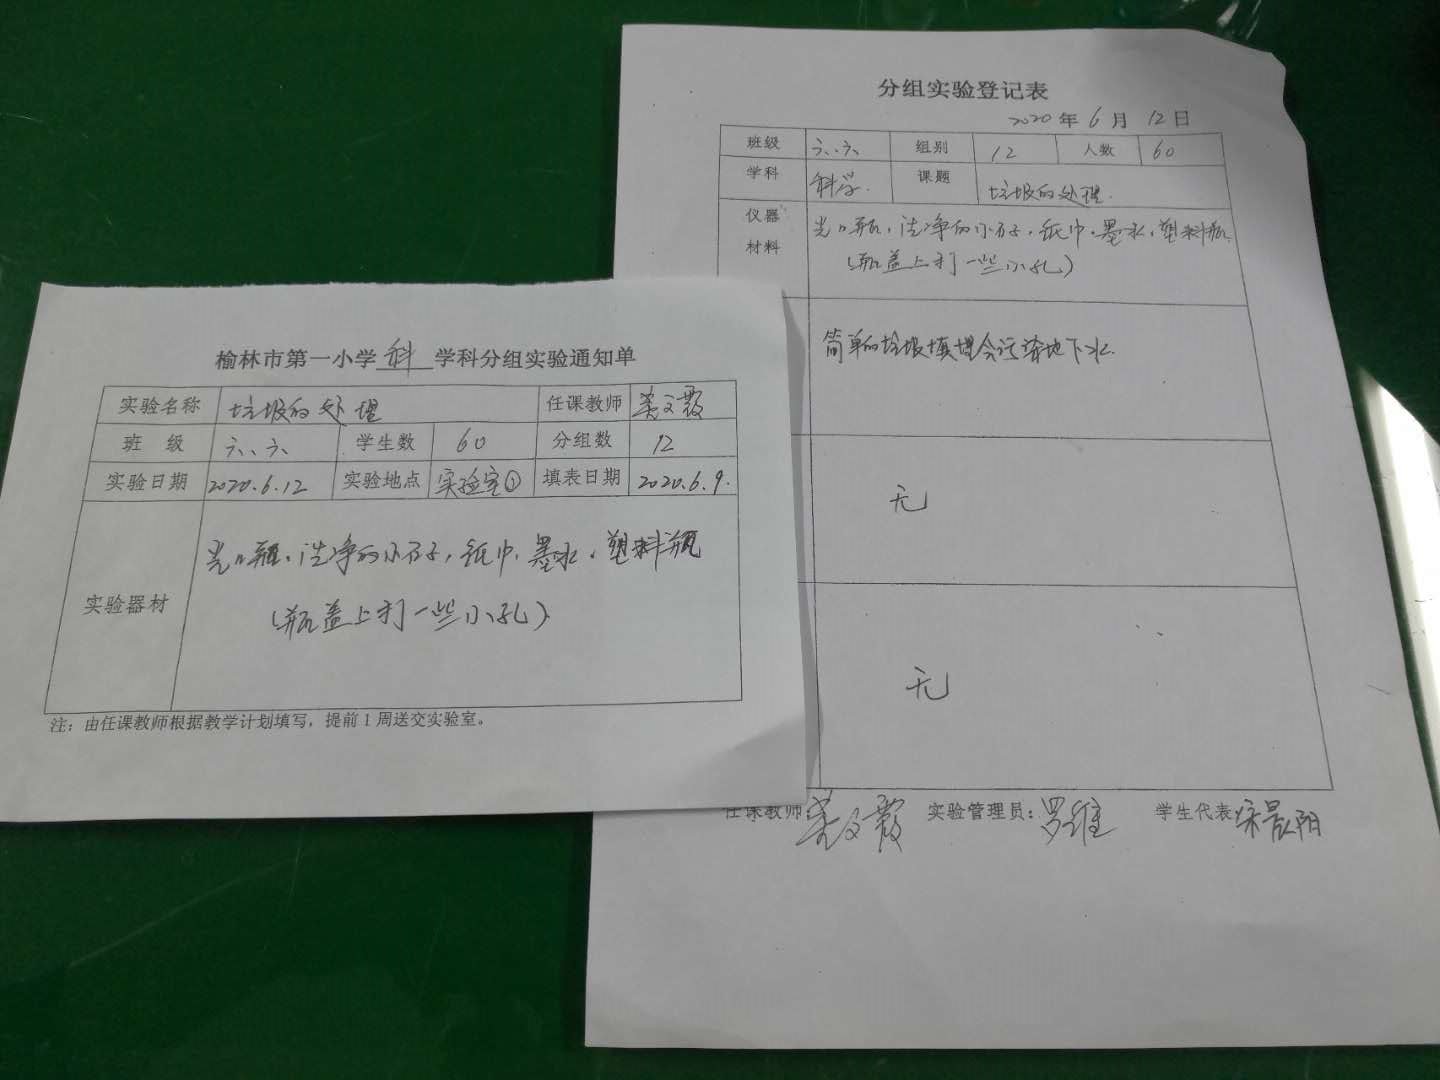 榆林市第一小学科学科分组实验通知单
实验名称 垃圾的处理 任课教师 姜文霞
班 级 六、六 学生数 60 分组数 12
实验日期 2020.6.12 实验地点 实验室① 填表日期 2020.6.9.
实验器材
光口瓶、洁净的小石子,纸巾、墨水、塑料瓶
(瓶盖上打一些小孔)
注:由任课教师根据教学计划填写,提前1周送交实验室。
分组实验登记表
2020年6月12日
班级 六、六 组别 12 人数 60
学科 科学. 课题 垃圾的处理.
仪器
材料
光口瓶、洁净的小石子,纸巾、墨水、塑料瓶
(瓶盖上打一些小孔)
简单的垃圾填埋会污染地下水.
无
无
任课教师 姜文霞 实验管理员:罗维 学生代表 宋晨阳